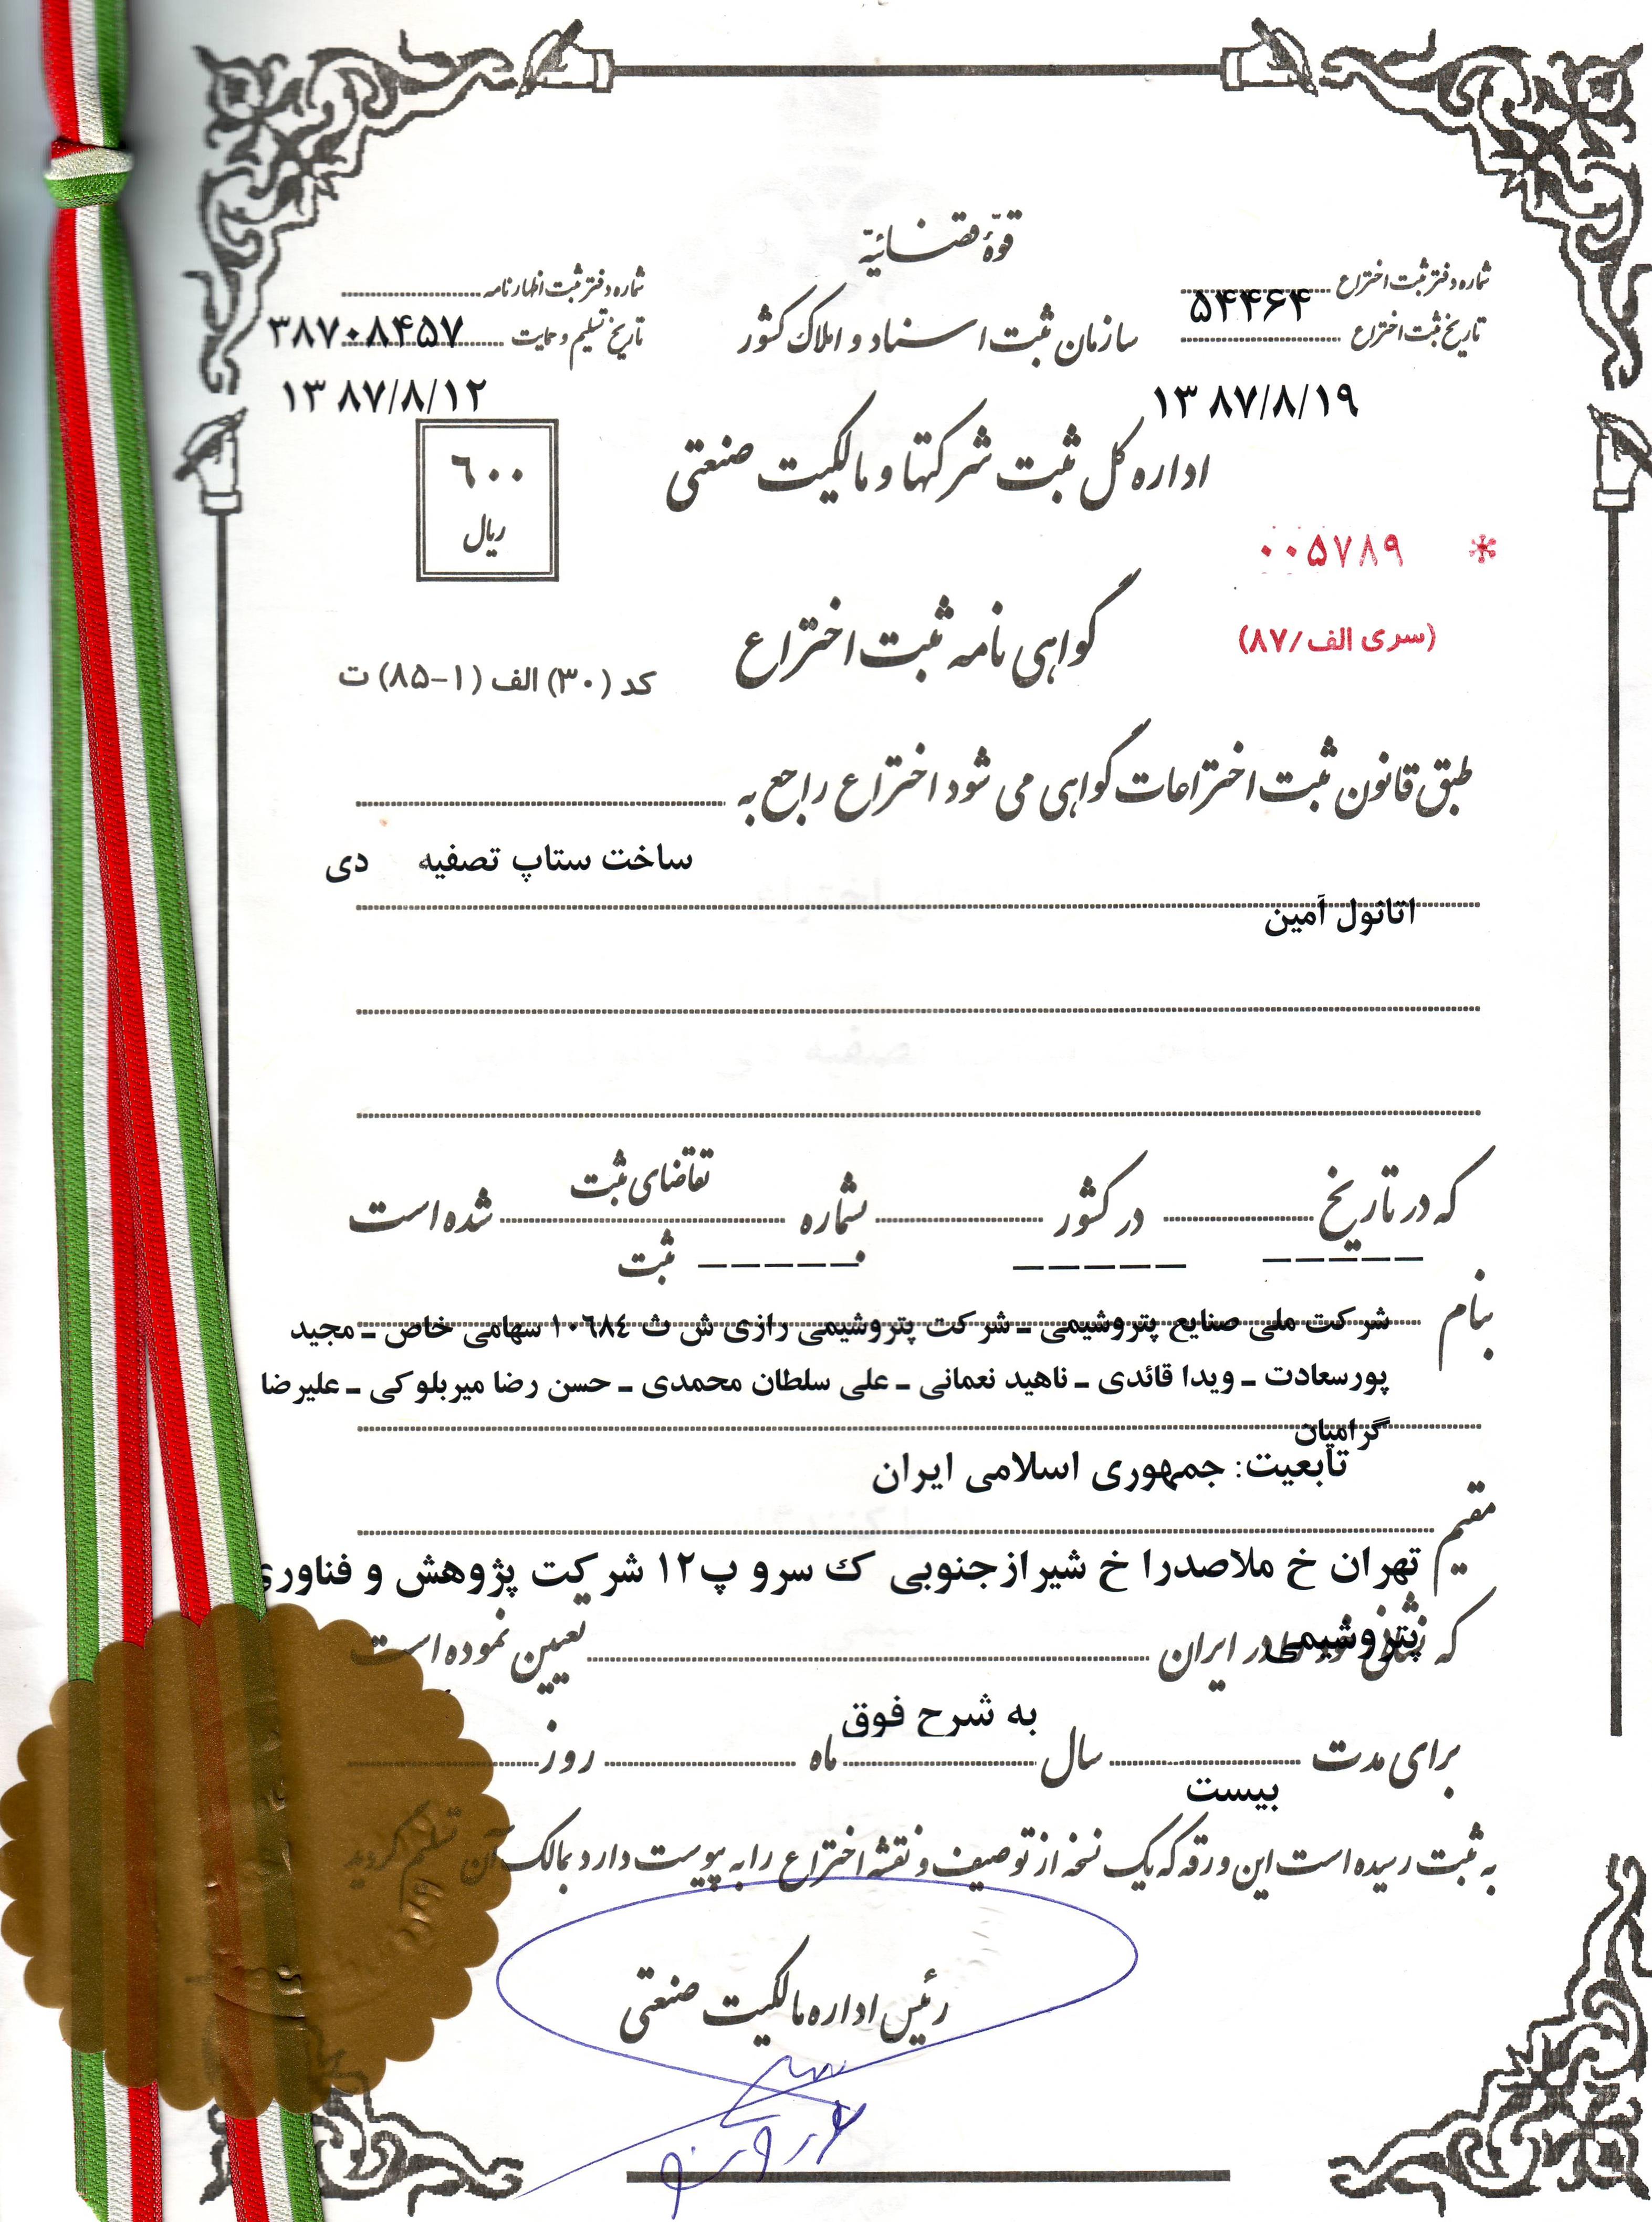 قوهٔ قضائیّه
شماره دفتر ثبت اختراع
۵۴۴۶۴
شماره دفتر ثبت اظهارنامه
سازمان ثبت اسناد و املاک کشور
تاریخ ثبت اختراع
تاریخ تسلیم و حمایت
۳۸۷۰۸۴۵۷
۱۳۸۷/۸/۱۹
۱۳۸۷/۸/۱۲
اداره کل ثبت شرکتها و مالکیت صنعتی
۶۰۰
ریال
* ۰۰۵۷۸۹
(سری الف/۸۷)
گواهی نامه ثبت اختراع
کد (۳۰) الف (۱-۸۵) ت
طبق قانون ثبت اختراعات گواهی می شود اختراع راجع به
ساخت ستاپ تصفیه دی
اتانول آمین
که در تاریخ در کشور بشماره تقاضای ثبت شده است
ثبت
بنام
شرکت ملی صنایع پتروشیمی ـ شرکت پتروشیمی رازی ش ث ۱۰٦۸٤ سهامی خاص ـ مجید
پورسعادت ـ ویدا قائدی ـ ناهید نعمانی ـ علی سلطان محمدی ـ حسن رضا میربلوکی ـ علیرضا
گرامیان
تابعیت: جمهوری اسلامی ایران
مقیم
تهران خ ملاصدرا خ شیرازجنوبی ک سرو پ۱۲ شرکت پژوهش و فناوری
پتروشیمی
که در ایران تعیین نموده است
به شرح فوق
برای مدت سال ماه روز
بیست
به ثبت رسیده است این ورقه که یک نسخه از توصیف و نقشه اختراع را به پیوست دارد بمالک آن تسلیم گردید
رئیس اداره مالکیت صنعتی